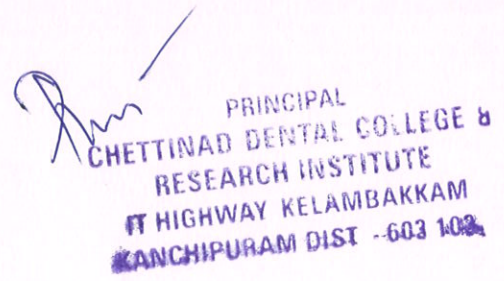 PRINCIPAL
CHETTINAD DENTAL COLLEGE &
RESEARCH INSTITUTE
IT HIGHWAY KELAMBAKKAM
KANCHIPURAM DIST - 603 103.